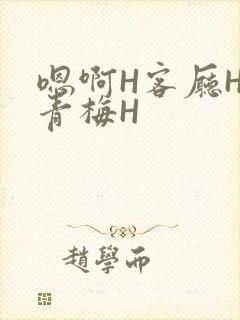 嗯啊H客厅H
青梅H
趙學而